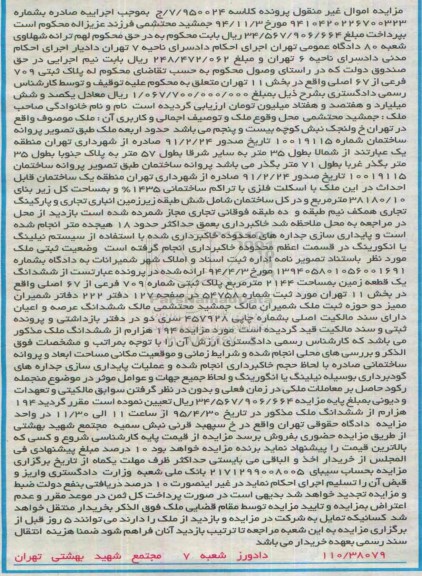 مزایده اموال غیر منقول پرونده کلاسه ۹۵۰۰۲۴/۷/ج بموجب اجراییه صادره بشماره
۹۴۱۰۴۲۰۲۲۶۷۰۰۳۲۳ مورخ ۹۴/۱۱/۳ جمشید محتشمی فرزند عزیزاله محکوم است
بپرداخت مبلغ ۳۴/۵۶۷/۹۰۶/۶۶۴ ریال بابت محکوم به در حق محکوم لهم ترانه شهلاوی
شعبه ۸۰ دادگاه عمومی تهران اجرای احکام دادسرای ناحیه ۷ تهران دادیار اجرای احکام
مدنی دادسرای ناحیه ۶ تهران و مبلغ ۲۴۸/۴۷۲/۰۶۲ ریال بابت نیم اجرایی در حق
صندوق دولت که در راستای وصول محکوم به حسب تقاضای محکوم له پلاک ثبتی ۷۰۹
فرعی از ۶۷ اصلی واقع در بخش ۱۱ تهران متعلق به محکوم علیه توقیف و توسط کارشناس
رسمی دادگستری بشرح ذیل بمبلغ ۱/۰۶۷/۷۰۰/۰۰۰/۰۰۰ ریال معادل یکصد و شش
میلیارد و هفتصد و هفتاد میلیون تومان ارزیابی گردیده است نام و نام خانوادگی صاحب
ملک : جمشید محتشمی محل وقوع ملک و توصیف اجمالی و کاربری آن : ملک موصوف واقع
در تهران خ ولنجک نبش کوچه بیست و پنجم می باشد حدود اربعه ملک طبق تصویر پروانه
ساختمان شماره ۱۰۰۱۹۱۱۵ تاریخ صدور ۹۱/۲/۲۴ صادره از شهرداری تهران منطقه
یک عبارتند از شمالا بطول ۳۵ متر به سایر شرقا بطول ۵۷ متر به پلاک جنوبا بطول ۳۵
متر بگذر غربا بطول ۷۱ متر بگذر می باشد پروانه ساختمان طبق تصویر پروانه ساختمان
۱۰۰۱۹۱۱۵ تاریخ صدور ۹۱/۲/۲۴ صادره از شهرداری تهران منطقه یک ساختمان قابل
احداث در این ملک با اسکلت فلزی با تراکم ساختمانی ۱۴۳۵% و بمساحت کل زیر بنای
۳۸۱۸۰/۱۰ مترمربع و در کل ساختمان شامل شش طبقه زیرزمین انباری تجاری و پارکینگ
تجاری همکف نیم طبقه و ده طبقه فوقانی تجاری مجاز شمرده شده است بازدید از محل
در مراجعه به محل ملاحظه شد خاکبرداری بعمق حداکثر حدود ۱۸ هیجده متر انجام شده
است و پایداری سازی جداره های محدوده خاکبرداری شده با استفاده از سیستم نیلینگ
یا انکورینگ در قسمت اعظم محدوده خاکبرداری انجام گرفته است وضعیت ثبتی ملک
مورد نظر باستناد تصویر نامه اداره ثبت اسناد و املاک شهر شمیرانات به دادگاه بشماره
۱۳۹۴۰۵۸۰۱۰۵۶۰۰۱۶۹۱ مورخ ۹۴/۴/۳ ارائه شده در پرونده عبارتست از ششدانگ
یک قطعه زمین بمساحت ۲۱۴۴ مترمربع پلاک ثبتی شماره ۷۰۹ فرعی از ۶۷ اصلی واقع
در بخش ۱۱ تهران مورد ثبت شماره ۵۴۷۵۸ در صفحه ۱۲۷ دفتر ۲۲۲ دفتر شمیران
ممیز دو حوزه ثبت ملک شمیران مالک جمشید محتشمی مالک ششدانگ عرصه و اعیان
دارای سند مالکیت اصلی بشماره چاپی ۴۵۷۹۲۸ سری دو در دفتر بازداشتی و پرونده
ثبتی و سند مالکیت قید گردیده است مورد مزایده ۱۹۴ هزارم از ششدانگ ملک مذکور
می باشد که کارشناس رسمی دادگستری ارزش آن را با توجه بمراتب و مشخصات فوق
الذکر و بررسی های محلی انجام شده و شرایط زمانی و موقعیت مکانی مساحت ابعاد و پروانه
ساختمانی صادره با لحاظ حجم خاکبرداری انجام شده و عملیات پایداری سازی جداره های
گودبرداری بوسیله نیلینگ یا انکورینگ و لحاظ جمیع جهات و عوامل موثر در موضوع منجمله
رکود حاصل بر معاملات ملکی در زمان فعلی و بدون در نظر گرفتن سوابق مالکیتی و تعهدات
و دیونی بمبلغ پایه مزایده ۳۴/۵۶۷/۹۰۶/۶۶۴ ریال تعیین نموده است مقرر گردید ۱۹۴
هزارم از ششدانگ ملک مذکور در تاریخ ۹۵/۴/۳۰ از ساعت ۱۱ الی ۱۱/۳۰ در واحد
مزایده دادگاه حقوقی تهران واقع در خ سپهبد قرنی نبش سمیه مجتمع شهید بهشتی
از طریق مزایده حضوری بفروش برسد مزایده از قیمت پایه کارشناسی شروع و کسی که
بالاترین قیمت را پیشنهاد نماید برنده مزایده خواهد بود ۱۰ درصد مبلغ پیشنهادی فی
المجلس از خریدار اخذ و الباقی می بایستی حداکثر ظرف مهلت یکماه از تاریخ برگزاری
مزایده بحساب سیبای ۲۱۷۱۲۹۹۰۰۸۰۰۵ بانک ملی شعبه وزارت دادگستری واریز و
قبض آن را تسلیم اجرای احکام نماید در غیر اینصورت ۱۰ درصد دریافتی بنفع دولت ضبط
و مزایده تجدید خواهد شد بدیهی است در صورت پرداخت کل ثمن در موعد مقرر و عدم
اعتراض بمزایده و تایید مزایده توسط مقام قضایی ملک فوق الذکر بخریدار منتقل خواهد
شد کسانیکه تمایل به شرکت در مزایده و بازدید از ملک را دارند می توانند ۵ روز قبل از
برگزاری مزایده به این شعبه مراجعه تا ترتیب بازدید آنان فراهم شود ضمنا هزینه انتقال
سند رسمی بعهده خریدار می باشد
۱۱۰/۳۸۰۷۹ دادورز شعبه ۷ مجتمع شهید بهشتی تهران